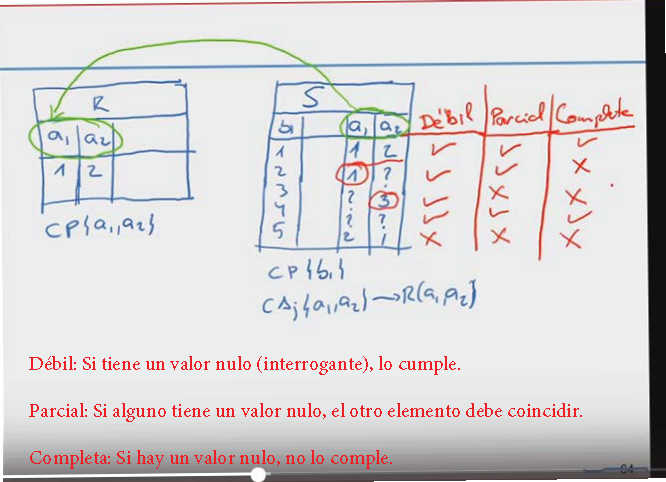 R
a1 a2
1 2
CP{a1,a2}
S
b1 a1 a2 Débil Parcial Completa
1 1 2 ✓ ✓ ✓
2 1 ? ✓ ✓ ✗
3 ? 3 ✓ ✗ ✗
4 ? ? ✓ ✓ ✓
5 2 1 ✗ ✗ ✗
CP{b1}
CAj{a1,a2}→R(a1,a2)
Débil: Si tiene un valor nulo (interrogante), lo cumple.
Parcial: Si alguno tiene un valor nulo, el otro elemento debe coincidir.
Completa: Si hay un valor nulo, no lo comple.
64